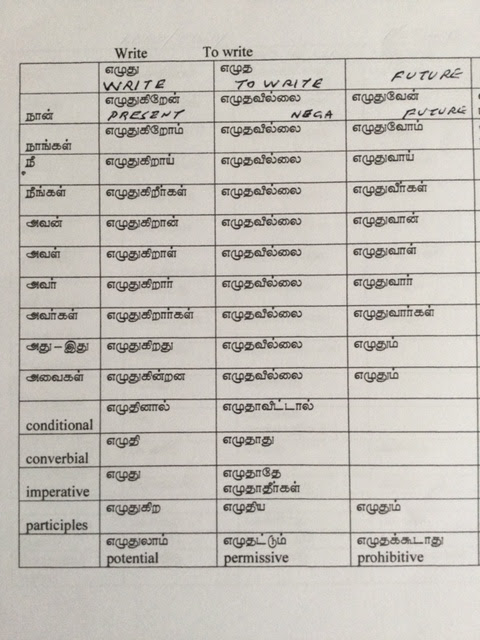 Write To write
எழுது எழுத
WRITE TO WRITE FUTURE
நான் எழுதுகிறேன் எழுதவில்லை எழுதுவேன்
PRESENT NEGA FUTURE
நாங்கள் எழுதுகிறோம் எழுதவில்லை எழுதுவோம்
நீ எழுதுகிறாய் எழுதவில்லை எழுதுவாய்
நீங்கள் எழுதுகிறீர்கள் எழுதவில்லை எழுதுவீர்கள்
அவன் எழுதுகிறான் எழுதவில்லை எழுதுவான்
அவள் எழுதுகிறாள் எழுதவில்லை எழுதுவாள்
அவர் எழுதுகிறார் எழுதவில்லை எழுதுவார்
அவர்கள் எழுதுகிறார்கள் எழுதவில்லை எழுதுவார்கள்
அது – இது எழுதுகிறது எழுதவில்லை எழுதும்
அவைகள் எழுதுகின்றன எழுதவில்லை எழுதும்
conditional எழுதினால் எழுதாவிட்டால்
converbial எழுதி எழுதாது
imperative எழுது எழுதாதே
எழுதாதீர்கள்
participles எழுதுகிற எழுதிய எழுதும்
எழுதுலாம் எழுதட்டும் எழுதக்கூடாது
potential permissive prohibitive